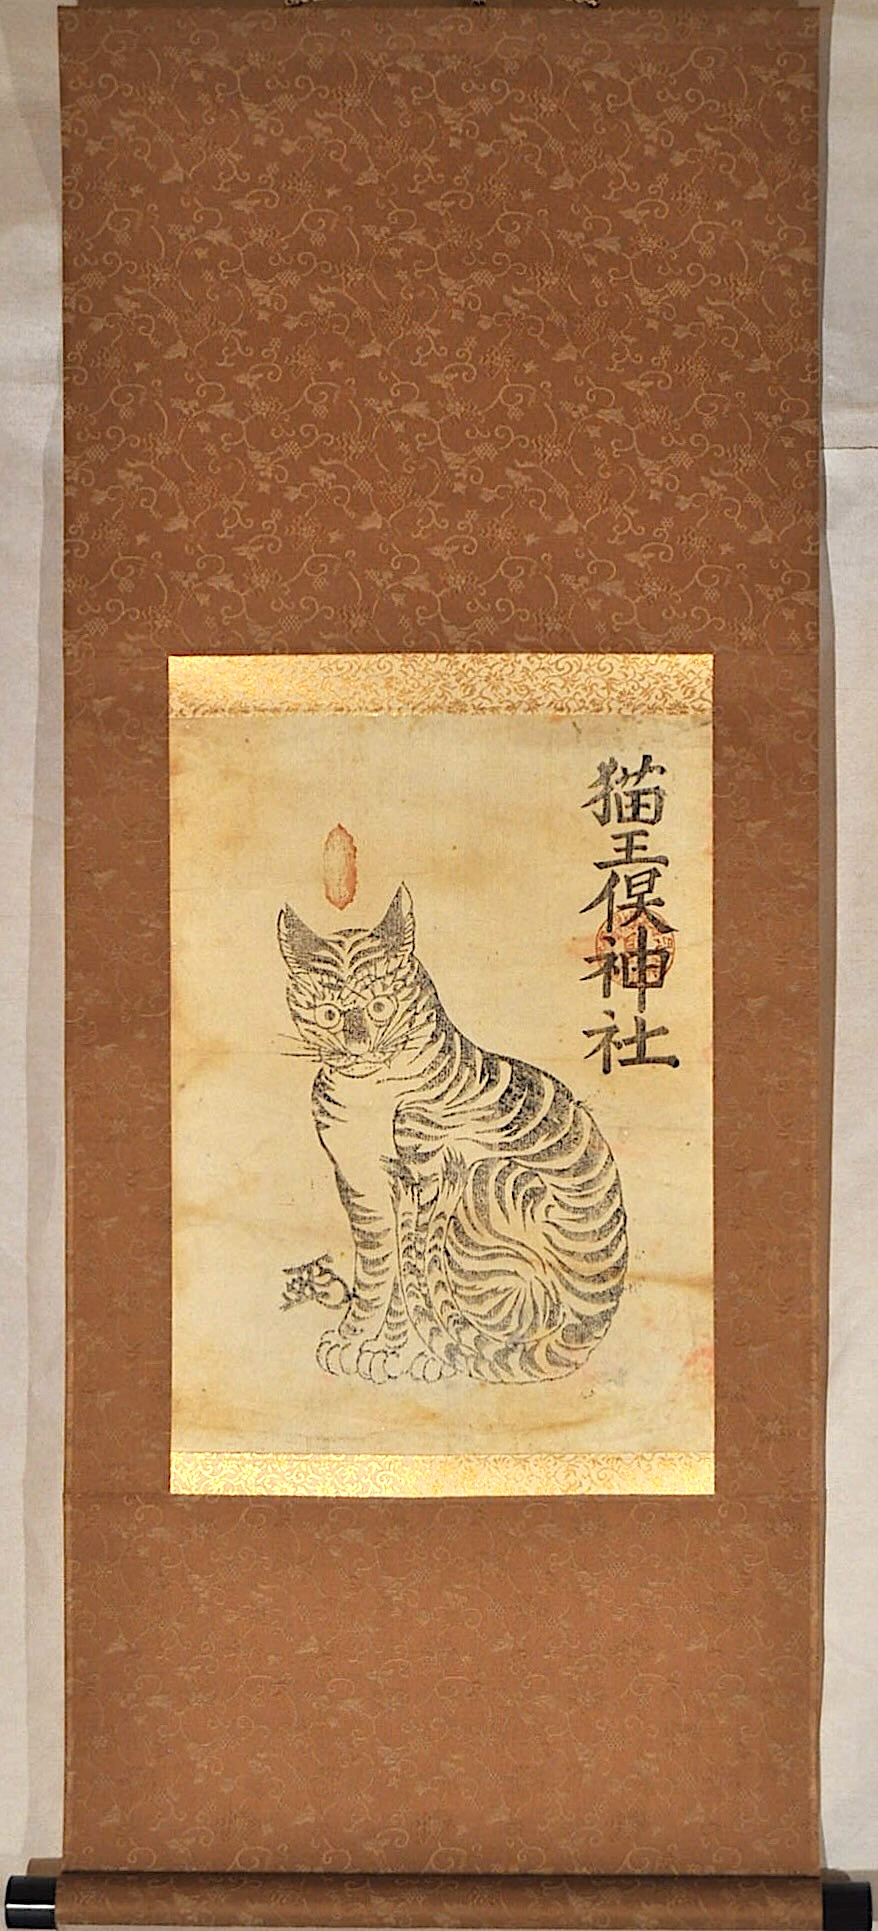 猫王俣神社